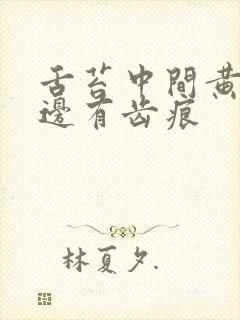 舌苔中間黄
邊有齿痕
林夏夕.